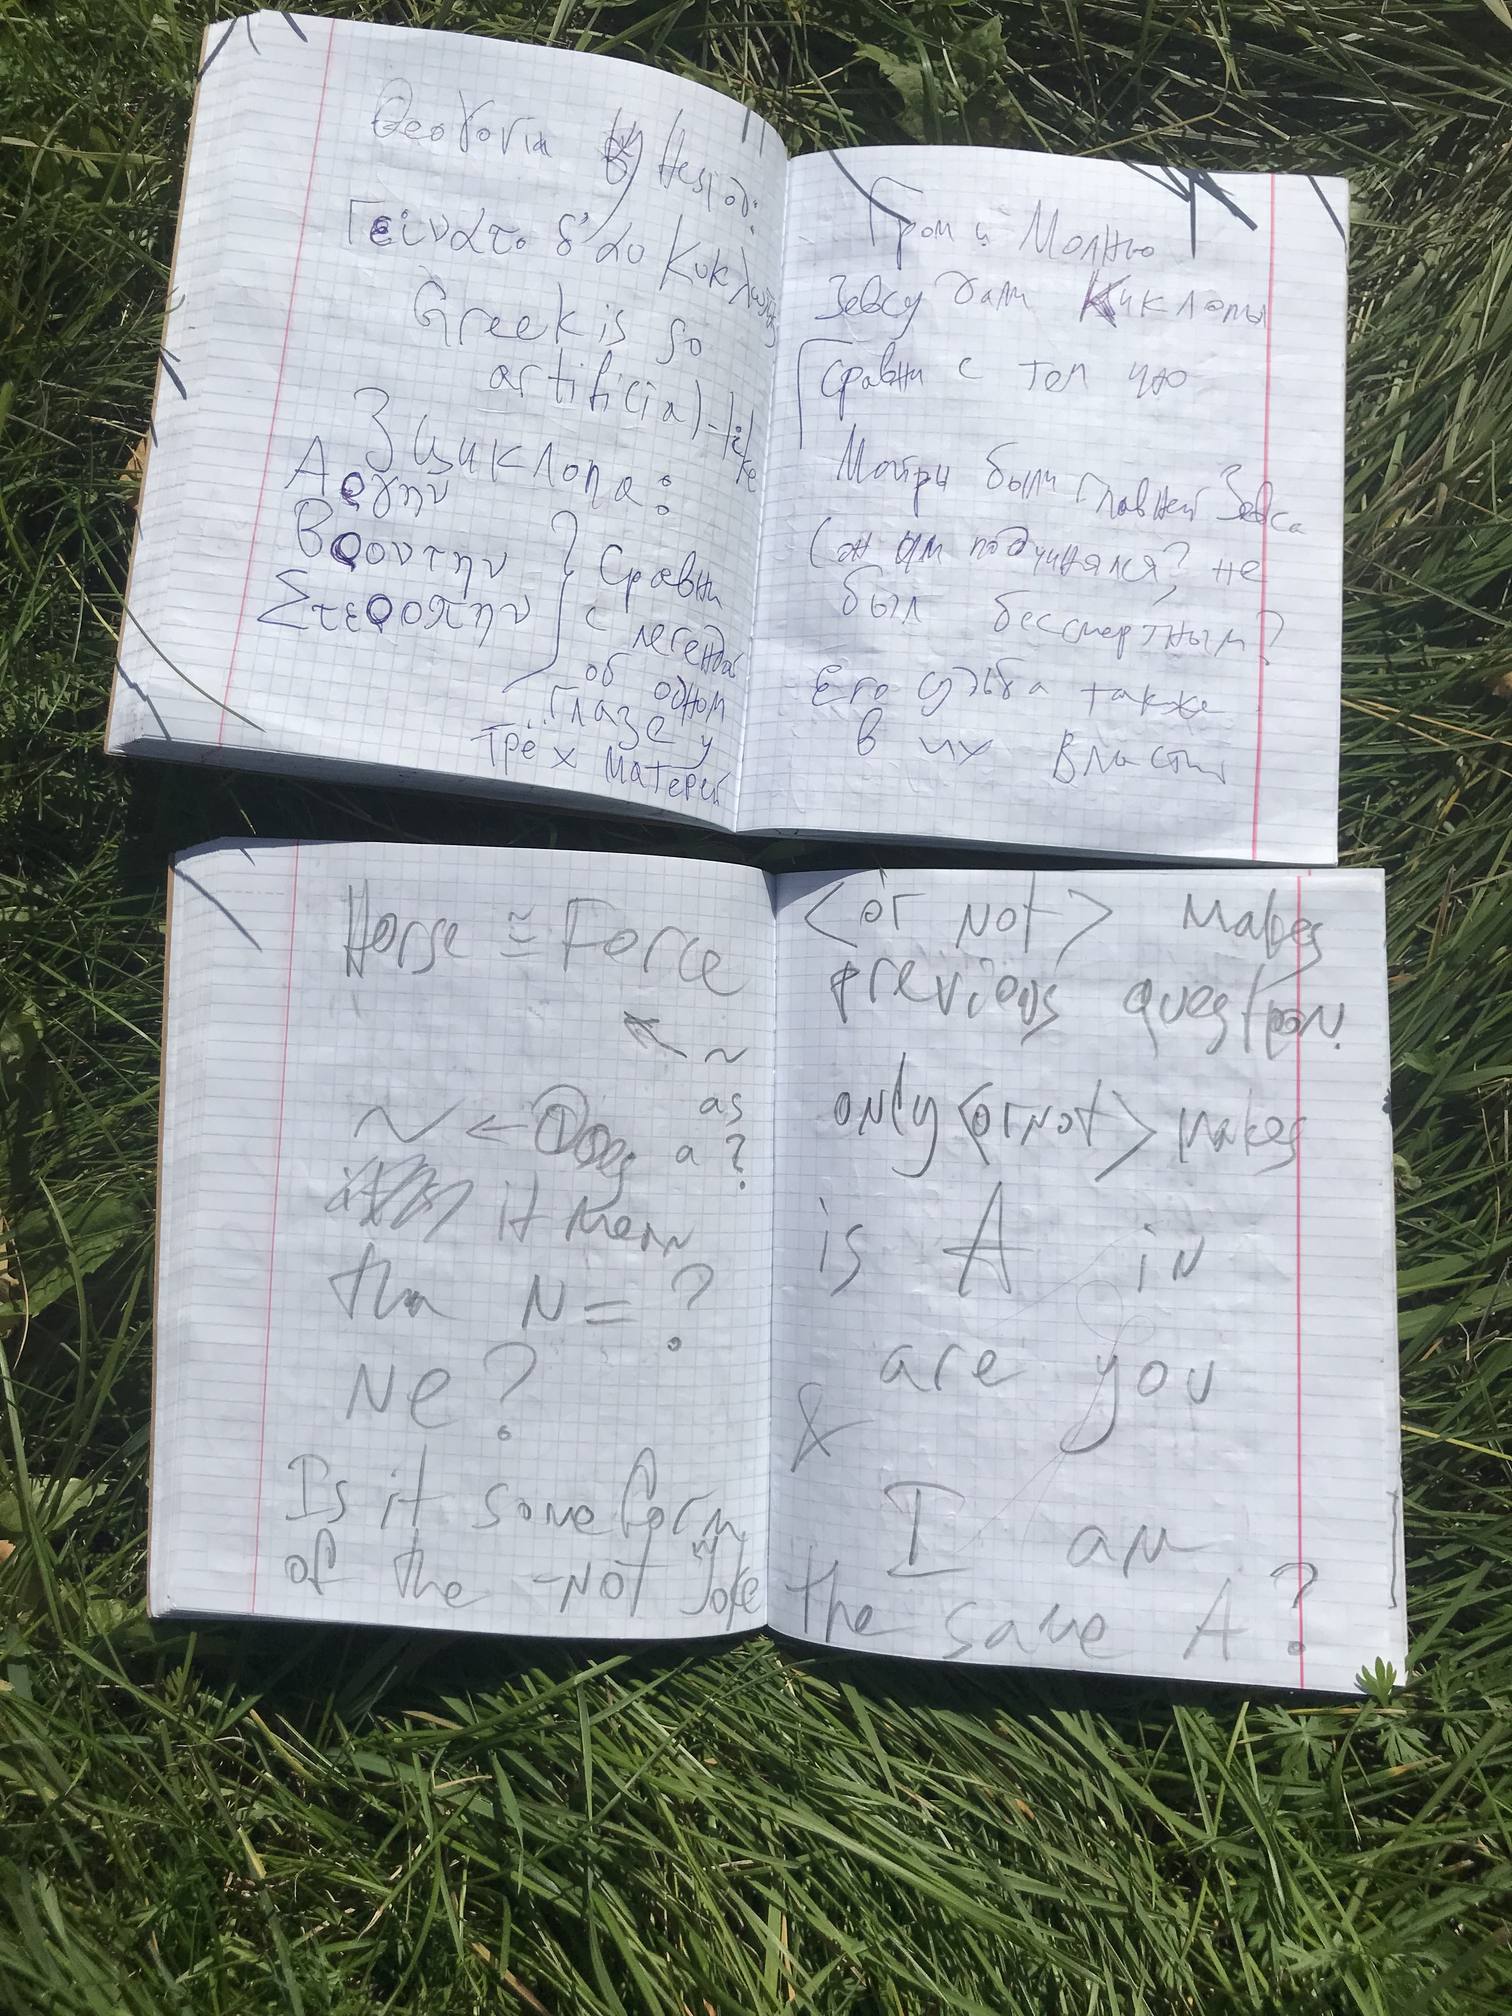 Θεογονία by Hesiod:
Γείνατο δ' αυ Κυκλωπας
Greek is so
artificial-like
3 циклопа:
Αργην
Βροντην
Στεροπην
Сравни
с
легендой
об одном
глазе у
трёх матерей
Гром и Молнию
Зевсу дали Киклопы
Сравни с тем что
Мойры были главней Зевса
(он им подчинялся? не
был бессмертным?
Его судьба также
в их власти
Horse ≅ Force
~
as
a ?
~ ← Does
it mean
the N = ?
Ne?
Is it some form
of the -NOT Joke
<or not> makes
previous question.
only <or not> makes
is A in
are you
&
I am
the same A?